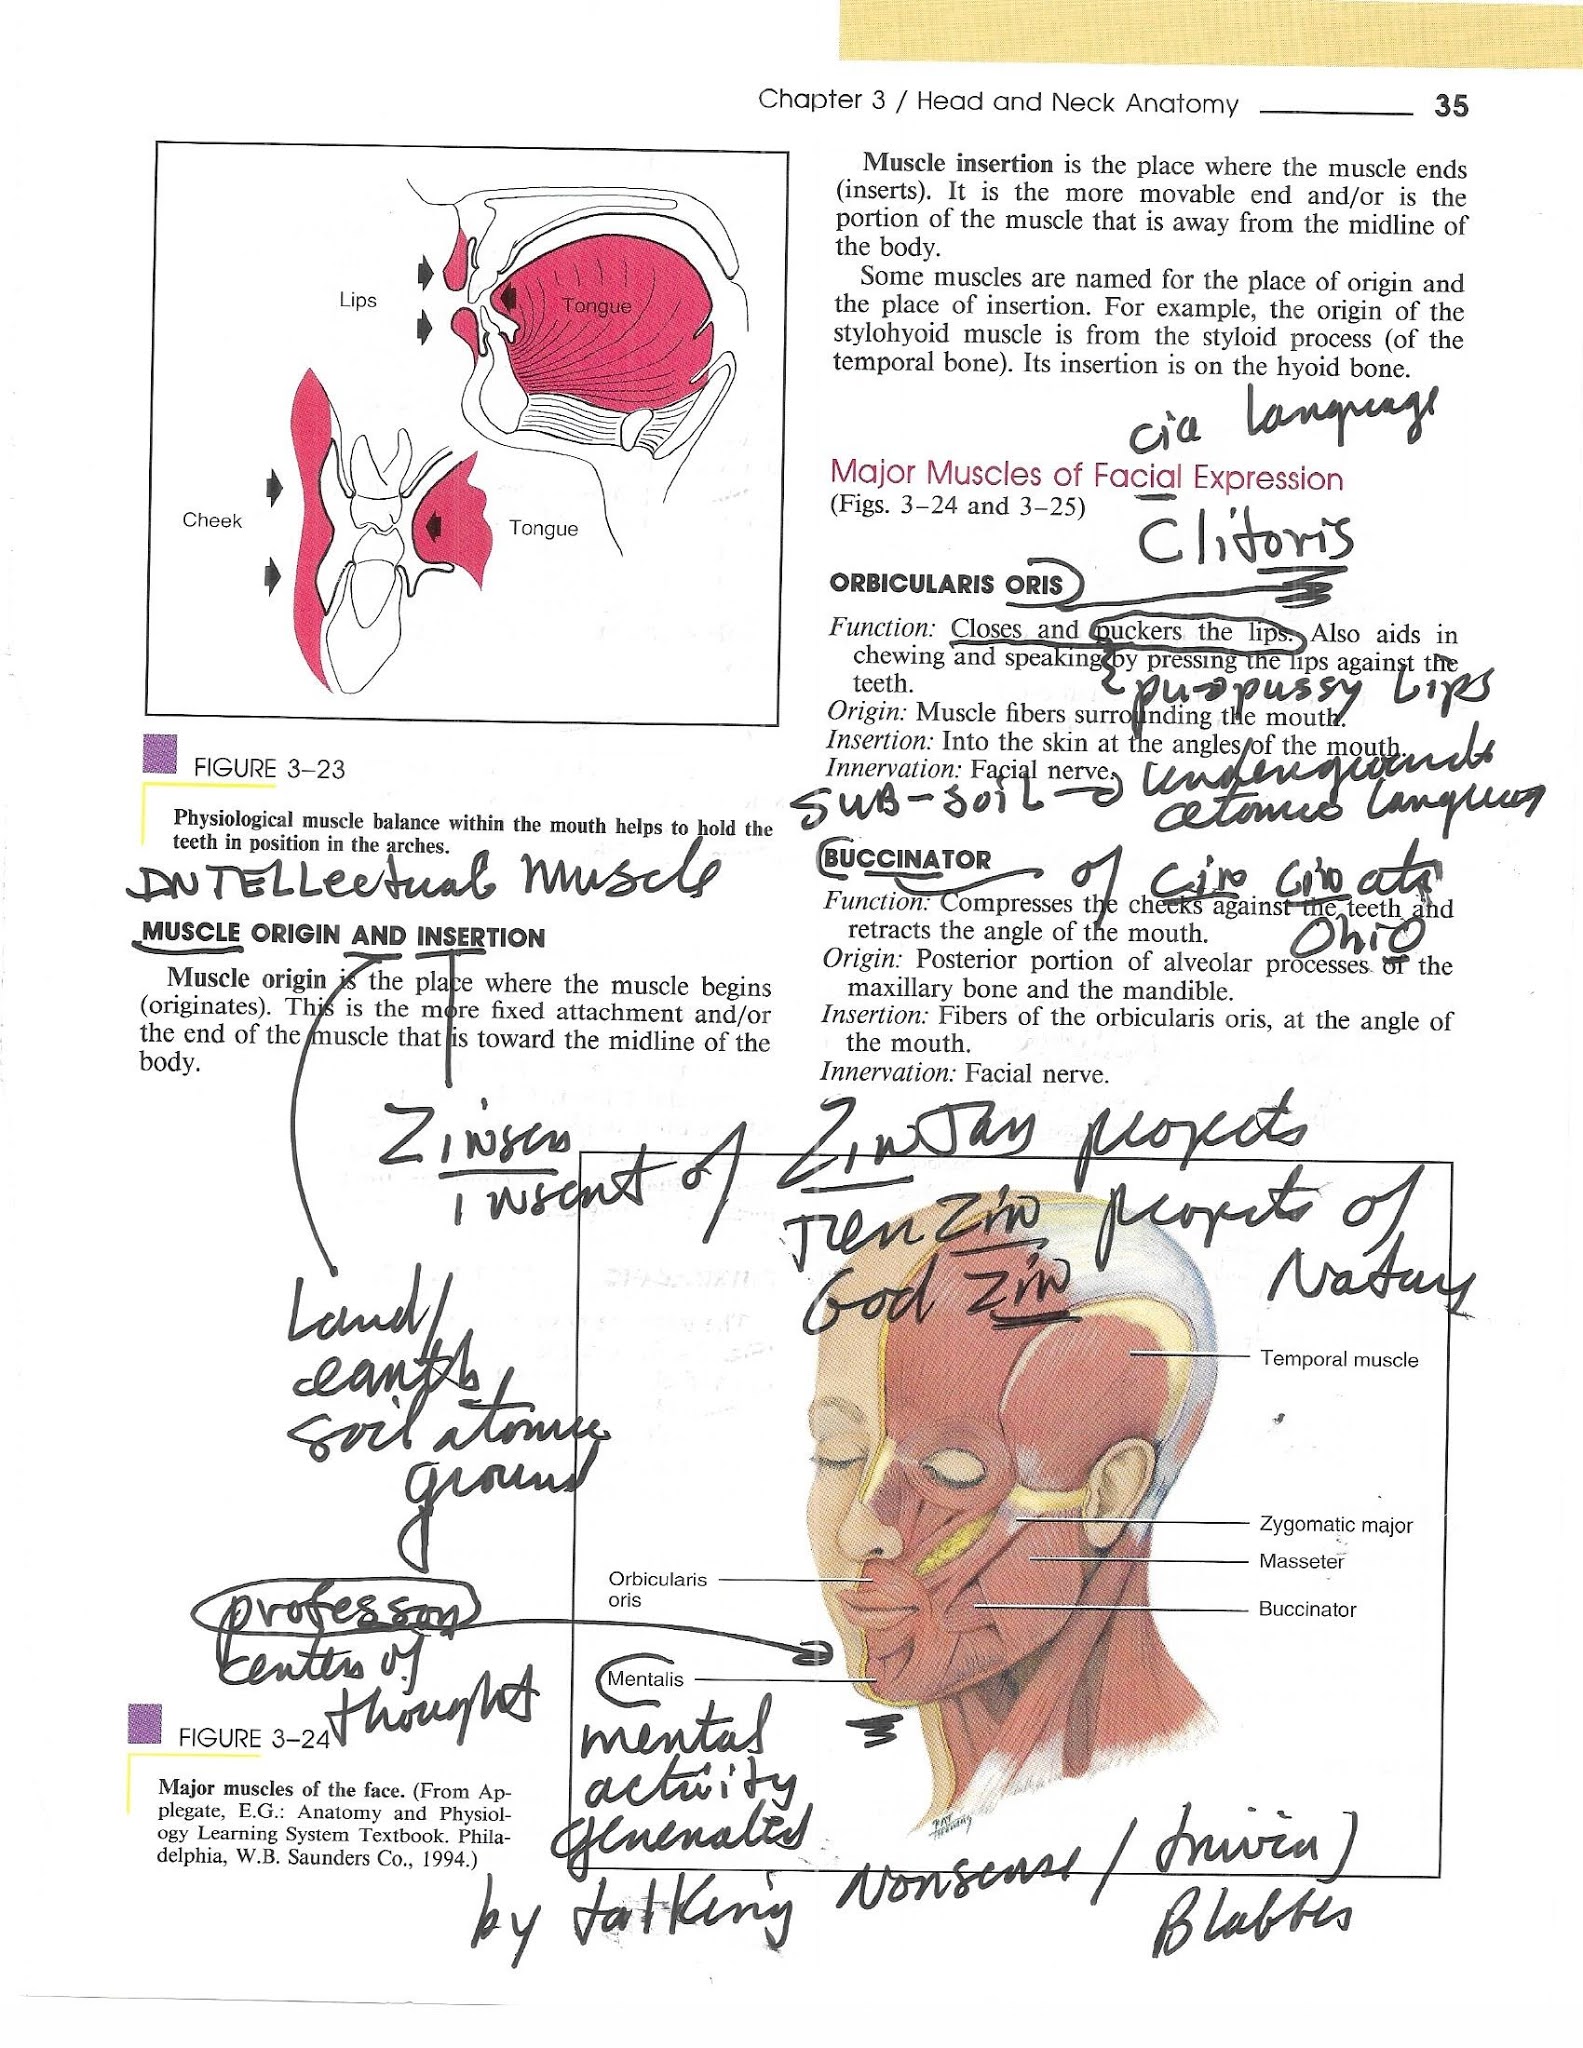 Chapter 3 / Head and Neck Anatomy
35
Lips
Tongue
Cheek
Tongue
FIGURE 3–23
Physiological muscle balance within the mouth helps to hold the
teeth in position in the arches.
INTELLectual Muscle
MUSCLE ORIGIN AND INSERTION
Muscle origin is the place where the muscle begins
(originates). This is the more fixed attachment and/or
the end of the muscle that is toward the midline of the
body.
Muscle insertion is the place where the muscle ends
(inserts). It is the more movable end and/or is the
portion of the muscle that is away from the midline of
the body.
Some muscles are named for the place of origin and
the place of insertion. For example, the origin of the
stylohyoid muscle is from the styloid process (of the
temporal bone). Its insertion is on the hyoid bone.
cia language
Major Muscles of Facial Expression
(Figs. 3–24 and 3–25)
Clitoris
ORBICULARIS ORIS
Function: Closes and puckers the lips. Also aids in
chewing and speaking by pressing the lips against the
teeth.
pu→pussy Lips
Origin: Muscle fibers surrounding the mouth.
Insertion: Into the skin at the angles of the mouth.
Innervation: Facial nerve.
SUB-Soil → underground
atomic language
BUCCINATOR
of cin cin ati
Ohio
Function: Compresses the cheeks against the teeth and
retracts the angle of the mouth.
Origin: Posterior portion of alveolar processes of the
maxillary bone and the mandible.
Insertion: Fibers of the orbicularis oris, at the angle of
the mouth.
Innervation: Facial nerve.
Zinser
insert of
ZinJan projects
Tien Zin projects of
God Zin
Nature
Land/
earth
soil atomic
ground
professor
center of
thought
Temporal muscle
Zygomatic major
Masseter
Buccinator
Orbicularis
oris
Mentalis
mental
activity
generated
by talking Nonsense / trivia /
Blabbes
FIGURE 3–24
Major muscles of the face. (From Ap-
plegate, E.G.: Anatomy and Physiol-
ogy Learning System Textbook. Phila-
delphia, W.B. Saunders Co., 1994.)